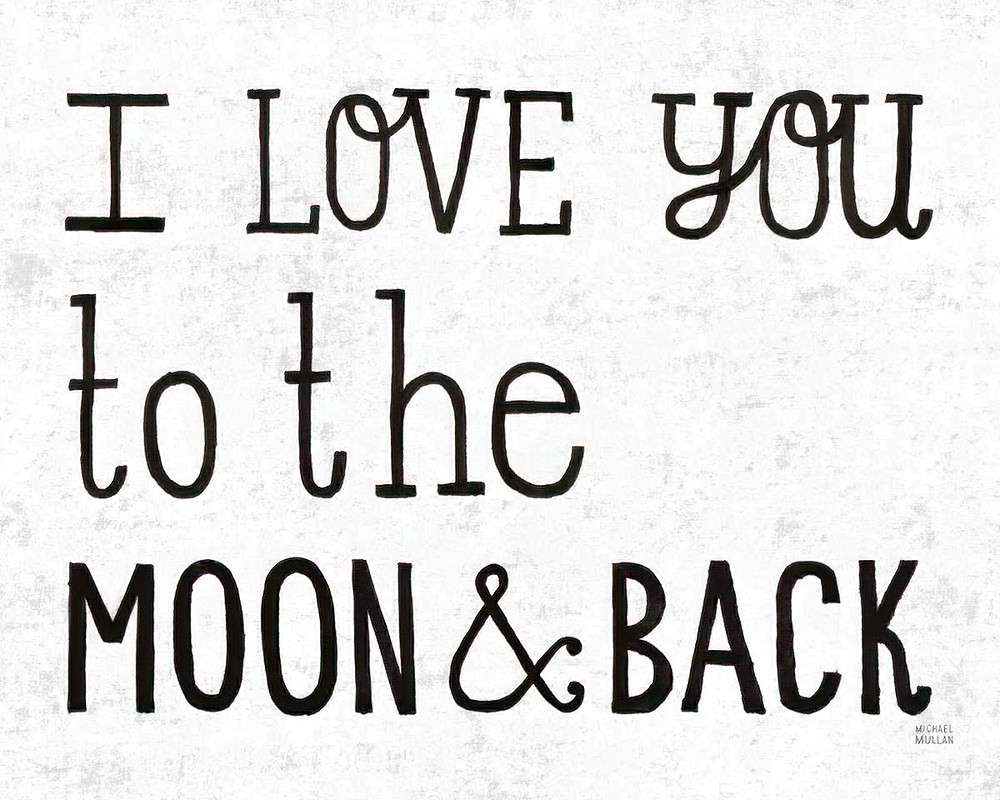 I LOVE YOU
to the
MOON & BACK
MICHAEL
MULLAN